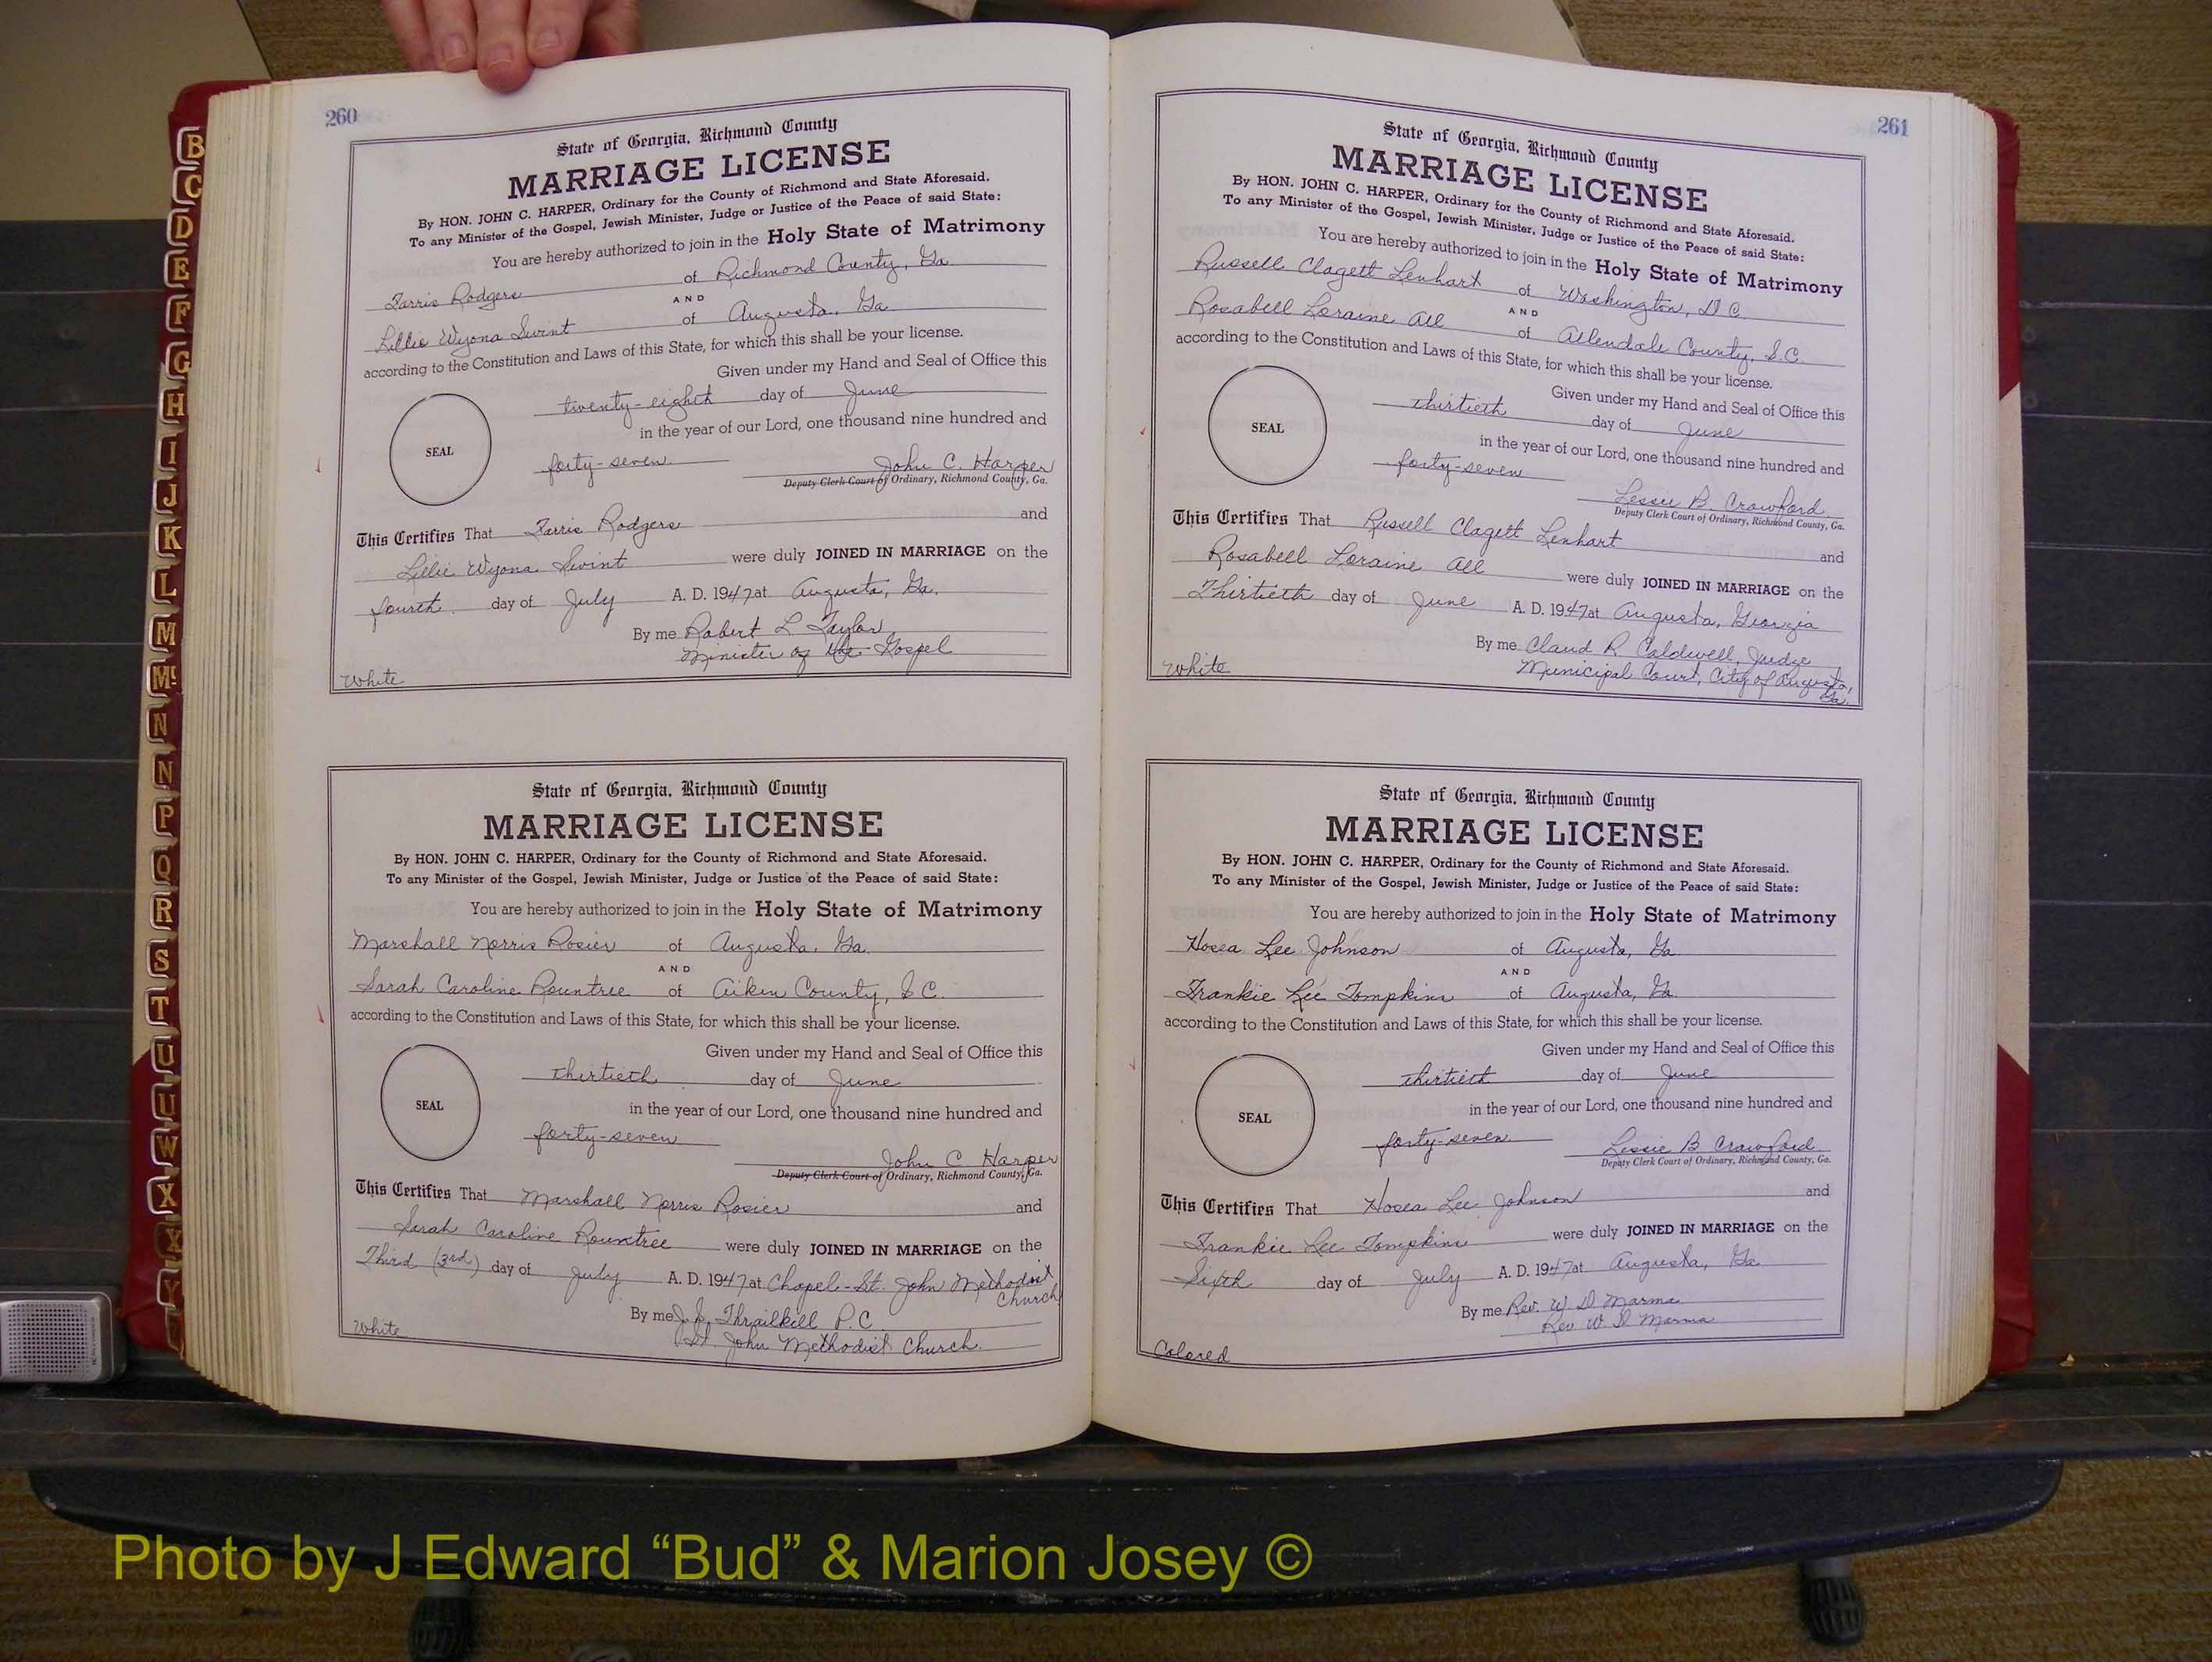 260
State of Georgia, Richmond County
MARRIAGE LICENSE
By HON. JOHN C. HARPER, Ordinary for the County of Richmond and State Aforesaid.
To any Minister of the Gospel, Jewish Minister, Judge or Justice of the Peace of said State:
You are hereby authorized to join in the Holy State of Matrimony
Farris Rodgers of Richmond County, Ga.
AND
Lillie Wyona Swint of Augusta, Ga.
according to the Constitution and Laws of this State, for which this shall be your license.
Given under my Hand and Seal of Office this
twenty-eighth day of June
in the year of our Lord, one thousand nine hundred and
SEAL
forty-seven. John C. Harper
Deputy Clerk Court of Ordinary, Richmond County, Ga.
This Certifies That Farris Rodgers and
Lillie Wyona Swint were duly JOINED IN MARRIAGE on the
fourth day of July A. D. 1947 at Augusta, Ga.
By me Robert L Taylor
Minister of the Gospel
White
State of Georgia, Richmond County
MARRIAGE LICENSE
By HON. JOHN C. HARPER, Ordinary for the County of Richmond and State Aforesaid.
To any Minister of the Gospel, Jewish Minister, Judge or Justice of the Peace of said State:
You are hereby authorized to join in the Holy State of Matrimony
Marshall Norris Rosier of Augusta, Ga.
AND
Sarah Caroline Rountree of Aiken County, S.C.
according to the Constitution and Laws of this State, for which this shall be your license.
Given under my Hand and Seal of Office this
thirtieth day of June
in the year of our Lord, one thousand nine hundred and
SEAL
forty-seven John C. Harper
Deputy Clerk Court of Ordinary, Richmond County, Ga.
This Certifies That Marshall Norris Rosier and
Sarah Caroline Rountree were duly JOINED IN MARRIAGE on the
Third (3rd) day of July A. D. 1947 at Chapel-St. John Methodist
Church
By me J. S. Thrailkill P.C.
St. John Methodist Church.
White
261
State of Georgia, Richmond County
MARRIAGE LICENSE
By HON. JOHN C. HARPER, Ordinary for the County of Richmond and State Aforesaid.
To any Minister of the Gospel, Jewish Minister, Judge or Justice of the Peace of said State:
You are hereby authorized to join in the Holy State of Matrimony
Russell Clagett Lenhart of Washington, D.C.
AND
Rosabell Loraine All of Allendale County, S.C.
according to the Constitution and Laws of this State, for which this shall be your license.
Given under my Hand and Seal of Office this
thirtieth day of June
in the year of our Lord, one thousand nine hundred and
SEAL
forty-seven Lessie B. Crawford
Deputy Clerk Court of Ordinary, Richmond County, Ga.
This Certifies That Russell Clagett Lenhart and
Rosabell Loraine All were duly JOINED IN MARRIAGE on the
Thirtieth day of June A. D. 1947 at Augusta, Georgia
By me Claud R Caldwell, Judge
Municipal Court, City of Augusta,
Ga.
White
State of Georgia, Richmond County
MARRIAGE LICENSE
By HON. JOHN C. HARPER, Ordinary for the County of Richmond and State Aforesaid.
To any Minister of the Gospel, Jewish Minister, Judge or Justice of the Peace of said State:
You are hereby authorized to join in the Holy State of Matrimony
Hosea Lee Johnson of Augusta, Ga.
AND
Frankie Lee Tompkins of Augusta, Ga.
according to the Constitution and Laws of this State, for which this shall be your license.
Given under my Hand and Seal of Office this
thirtieth day of June
in the year of our Lord, one thousand nine hundred and
SEAL
forty-seven Lessie B Crawford
Deputy Clerk Court of Ordinary, Richmond County, Ga.
This Certifies That Hosea Lee Johnson and
Frankie Lee Tompkins were duly JOINED IN MARRIAGE on the
Sixth day of July A. D. 1947 at Augusta, Ga.
By me Rev. W D Marma
Rev W D Marma
Colored
B
C
D
E
F
G
H
I
J
K
L
M
Mc
N
N
P
Q
R
S
T
U
U
W
X
X
Y
Photo by J Edward “Bud” & Marion Josey ©